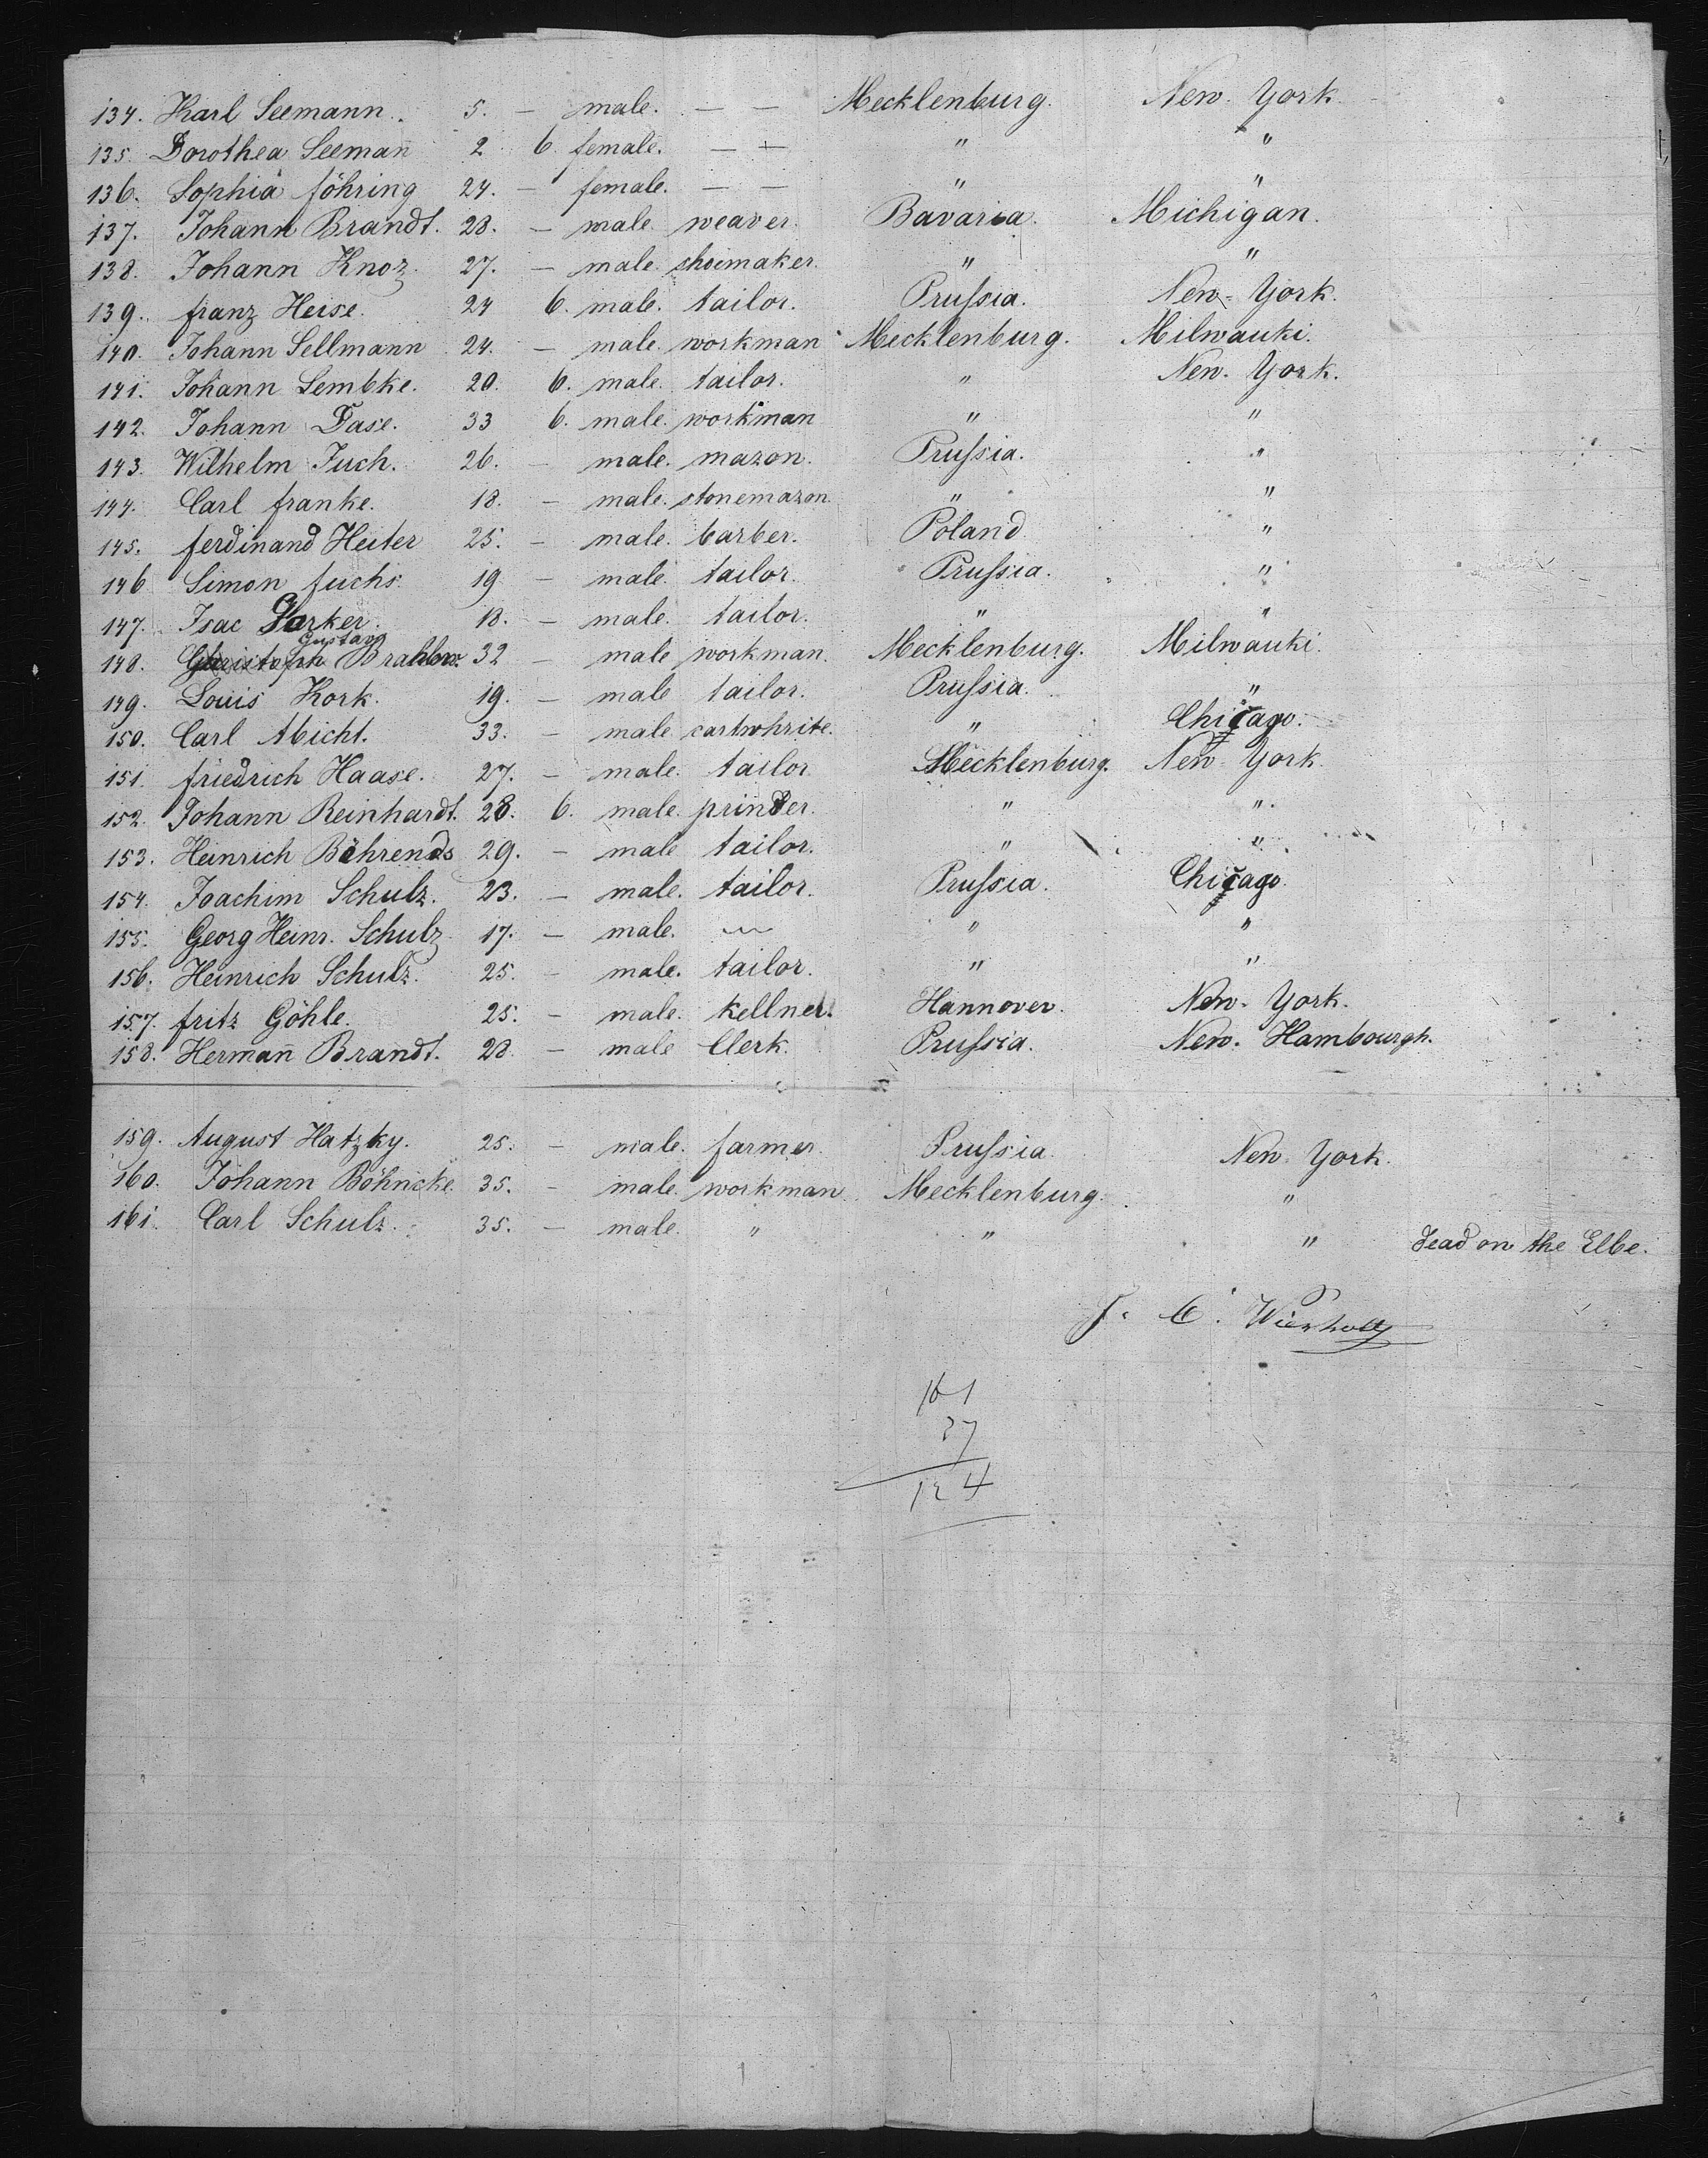 134. Karl Seemann. 5. — male. — — Mecklenburg. New York.
135. Dorothea Seeman̄ 2 6. female. — — " "
136. Sophia föhring 24. — female. — — " "
137. Johann Brandt. 28. — male weaver. Bavaria. Michigan.
138. Johann Knoz. 27. — male. shoimaker. " "
139. franz Heise. 24 6. male. tailor. Prufsia. New-York.
140. Johann Sellmann 24. — male. workman Mecklenburg. Milwauki.
141. Johann Lembke. 20. 6. male. tailor. " New-York.
142. Johann Dase. 33 6. male. workman " "
143. Wilhelm Juch. 26. — male. mazon. Prufsia. "
144. Carl franke. 18. — male. stonemazon. " "
145. ferdinand Heiter 25. — male. barber. Poland. "
146 Simon fuchs. 19 — male. tailor. Prufsia. "
147. Isac Parker. 18. — male. tailor. " "
Gustav
148. Christoph Brahlow. 32 — male workman. Mecklenburg. Milwauki.
149. Louis Kork. 19. — male tailor. Prufsia. "
150. Carl Abicht. 33. — male cartwhrite. " Chicago.
151. friedrich Haase. 27. — male. tailor Mecklenburg. New-York.
152. Johann Reinhardt. 28. 6. male. prinder. " "
153. Heinrich Behrends 29. — male tailor. " "
154. Joachim Schulz. 23. — male. tailor. Prufsia. Chicago.
155. Georg Heinr. Schulz 17. — male. — " "
156. Heinrich Schulz. 25. — male. tailor. " "
157. fritz Göhle. 25. — male. Kellner. Hannover. New-York.
158. Herman̄ Brandt. 28. — male Clerk. Prufsia. New-Hambourgh.
159. August Hatzky. 25. — male. farmer. Prufsia. New York.
160. Johann Böhncke. 35. — male. workman. Mecklenburg. "
161. Carl Schulz. 35. — male. " " " dead on the Elbe.
J. C. Wierholtz
161
37
124